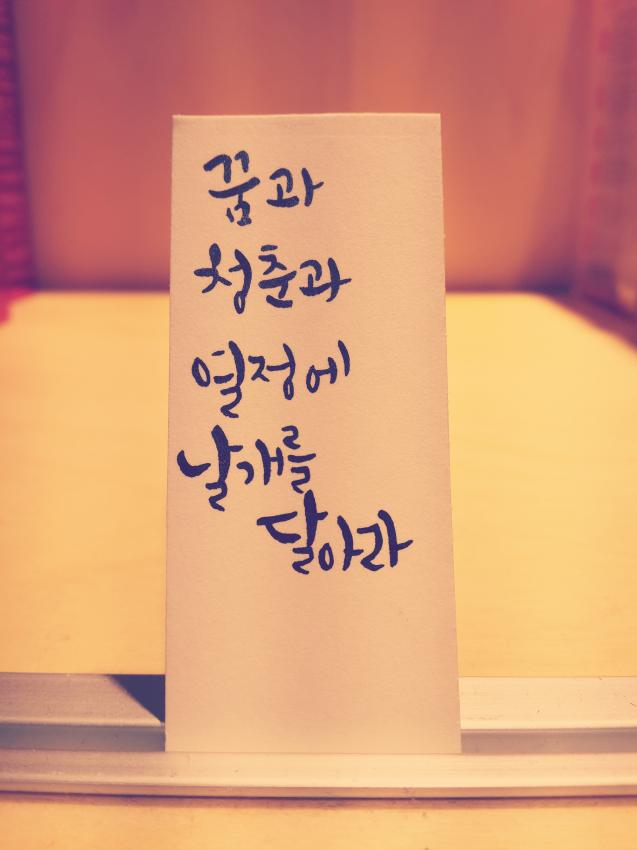 꿈과
청춘과
열정에
날개를
달아라